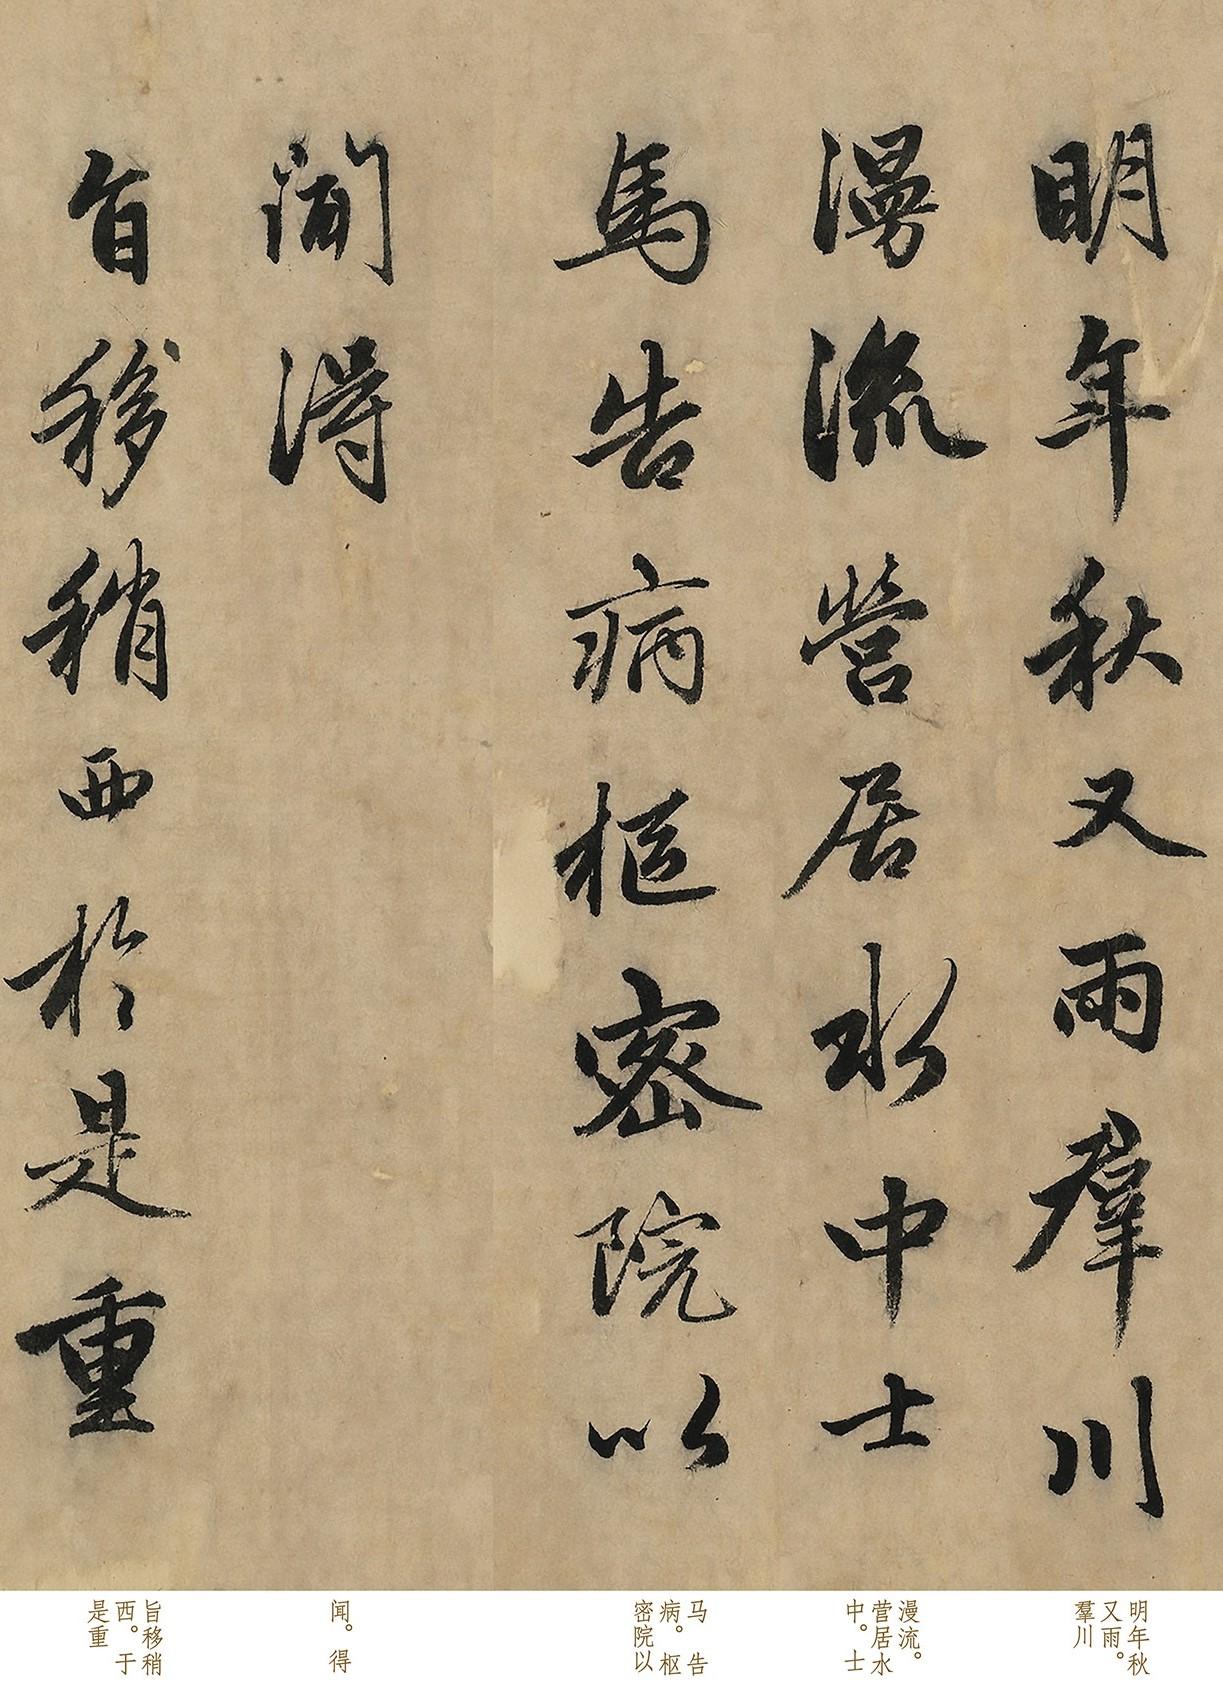 明年秋又雨羣川
漫流營居水中士
馬告病樞密院以
聞得
旨移稍西於是重
明年秋
又雨。
羣川
漫流。
营居水
中。士
马 告
病。枢
密院以
闻。得
旨移稍
西。于
是重